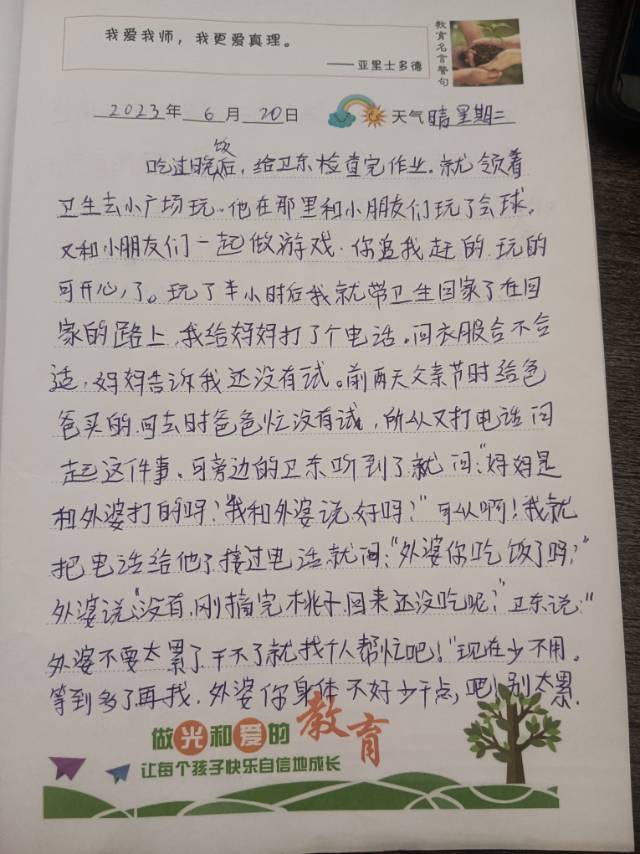 我爱我师，我更爱真理。
——亚里士多德
教育名言警句
2023年 6月 20日 天气晴星期二
饭
吃过晚后，给卫东检查完作业。就领着
卫生去小广场玩。他在那里和小朋友们玩了会球，
又和小朋友们一起做游戏．你追我赶的．玩的
可开心了。玩了半小时后我就带卫生回家了在回
家的路上，我给妈妈打了个电话。问衣服合不合
适，妈妈告诉我还没有试。前两天父亲节时给爸
爸买的．回去时爸爸忙没有试，所以又打电话问
起这件事、可旁边的卫东听到了就问："妈妈是
和外婆打的吗？"我和外婆说好吗？"可以啊！我就
把电话给他了．接过电话就问："外婆你吃饭了吗？"
外婆说："没有．刚搞完桃子．回来还没吃呢？"卫东说："
外婆不要太累了．干不了就找个人帮忙吧！"现在少不用。
等到多了再找．外婆你身体不好少干点，吧！别太累．
做光和爱的教育
让每个孩子快乐自信地成长